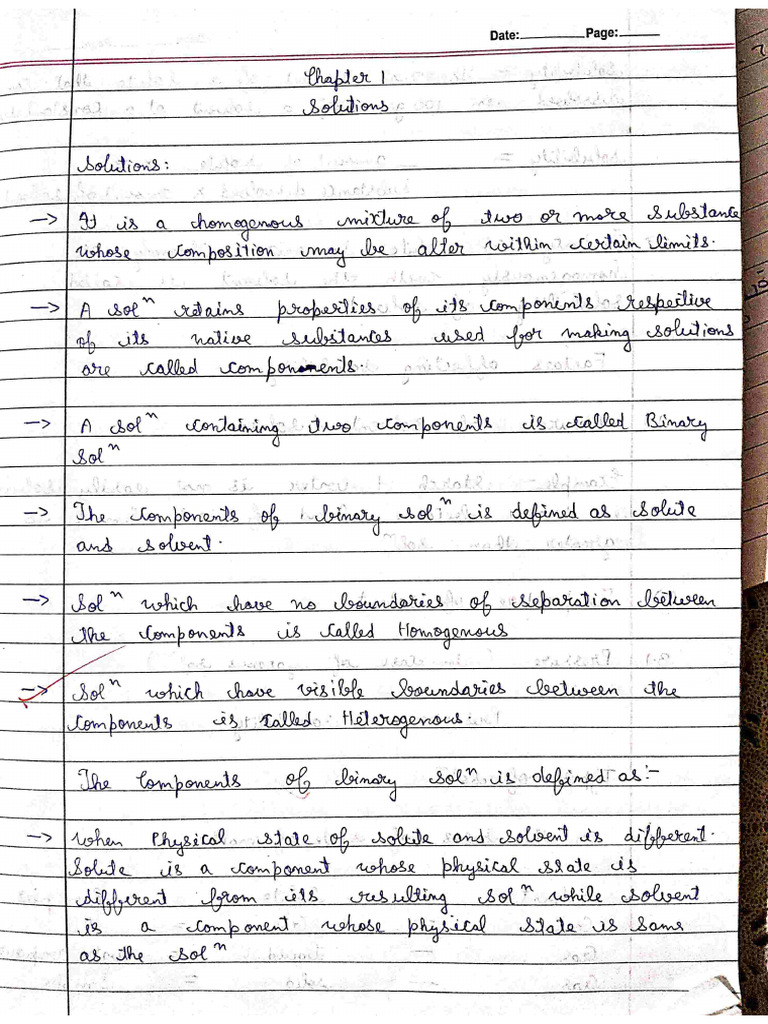 Date:________ Page:_____
Chapter 1
Solutions
Solutions:
→ It is a homogenous mixture of two or more substance
whose composition may be alter within certain limits.
→ A solⁿ retains properties of its components respective
of its native substances used for making solutions
are called components.
→ A solⁿ containing two components is called Binary
solⁿ
→ The components of binary solⁿ is defined as solute
and solvent.
→ Solⁿ which have no boundaries of separation between
the components is called Homogenous
→ Solⁿ which have visible boundaries between the
components is called Heterogenous.
The Components of binary solⁿ is defined as:-
→ When Physical state of solute and solvent is different.
Solute is a component whose physical state is
different from its resulting solⁿ while solvent
is a component whose physical state is same
as the solⁿ